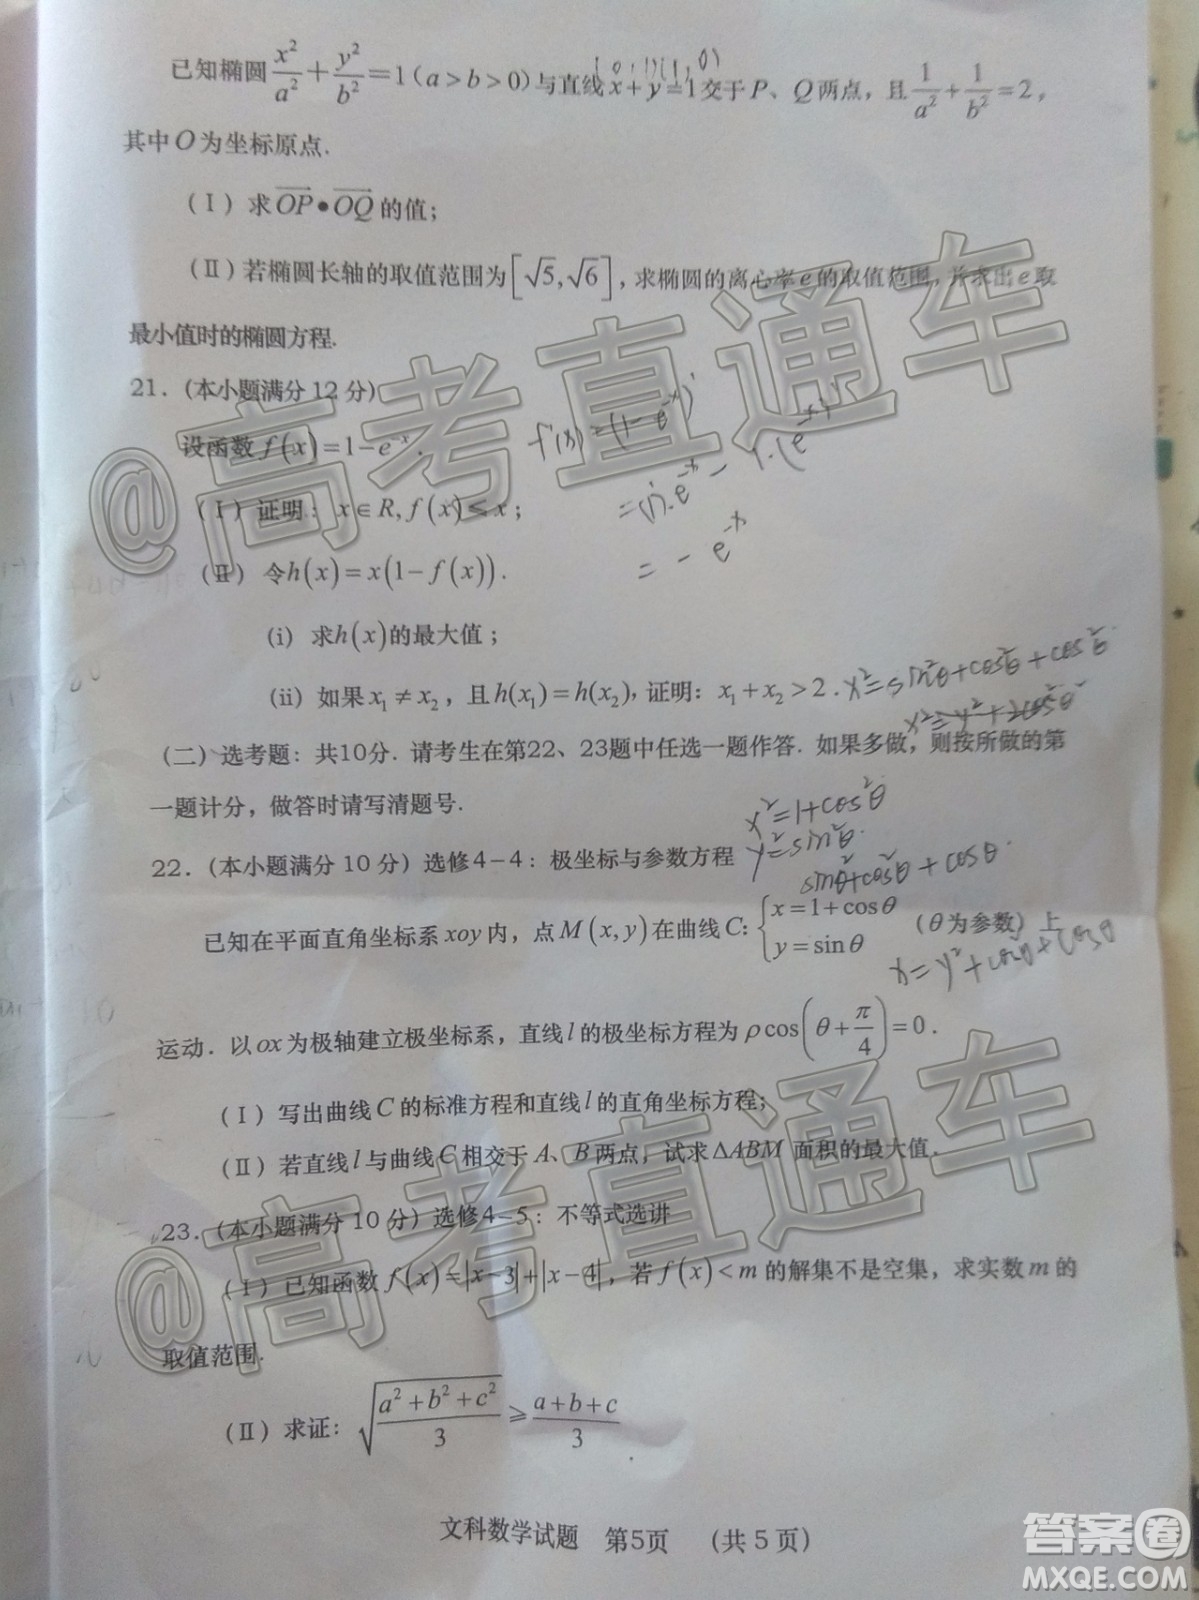 (0,1)(1,0)
已知椭圆x²/a²+y²/b²=1(a>b>0)与直线x+y=1交于P、Q两点，且1/a²+1/b²=2，
其中O为坐标原点.
(Ⅰ) 求OP•OQ的值；
(Ⅱ) 若椭圆长轴的取值范围为[√5,√6]，求椭圆的离心率e的取值范围，并求出e取
最小值时的椭圆方程.
21. (本小题满分12分)
设函数f(x)=1-e^{-x}.
f'(x)=(1-e^{-x})'
=(1)'·e^{-x}-1·(e^{-x})'
=-e^{-x}
(Ⅰ) 证明：x∈R,f(x)≤x；
(Ⅱ) 令h(x)=x(1-f(x)).
(i) 求h(x)的最大值；
(ii) 如果x₁≠x₂，且h(x₁)=h(x₂),证明：x₁+x₂>2.
x²=sin²θ+cos²θ+cos²θ
x²=y²+2cos²θ
(二) 选考题：共10分. 请考生在第22、23题中任选一题作答. 如果多做，则按所做的第
一题计分，做答时请写清题号.
x²=1+cos²θ
y²=sin²θ.
22. (本小题满分10分) 选修4-4：极坐标与参数方程
sin²θ+cos²θ+cosθ
已知在平面直角坐标系xoy内，点M(x,y)在曲线C:{x=1+cosθ
y=sinθ (θ为参数) 上
x=y²+cos²θ+cosθ
运动. 以ox为极轴建立极坐标系，直线l的极坐标方程为ρcos(θ+π/4)=0.
(Ⅰ) 写出曲线C的标准方程和直线l的直角坐标方程；
(Ⅱ) 若直线l与曲线C相交于A、B两点，试求△ABM面积的最大值.
23. (本小题满分10分) 选修4-5：不等式选讲
(Ⅰ) 已知函数f(x)=|x-3|+|x-4|，若f(x)<m的解集不是空集，求实数m的
取值范围.
(Ⅱ) 求证：√((a²+b²+c²)/3)≥(a+b+c)/3
文科数学试题 第5页 (共5页)
@高考直通车
@高考直通车
答案圈
MXQE.COM